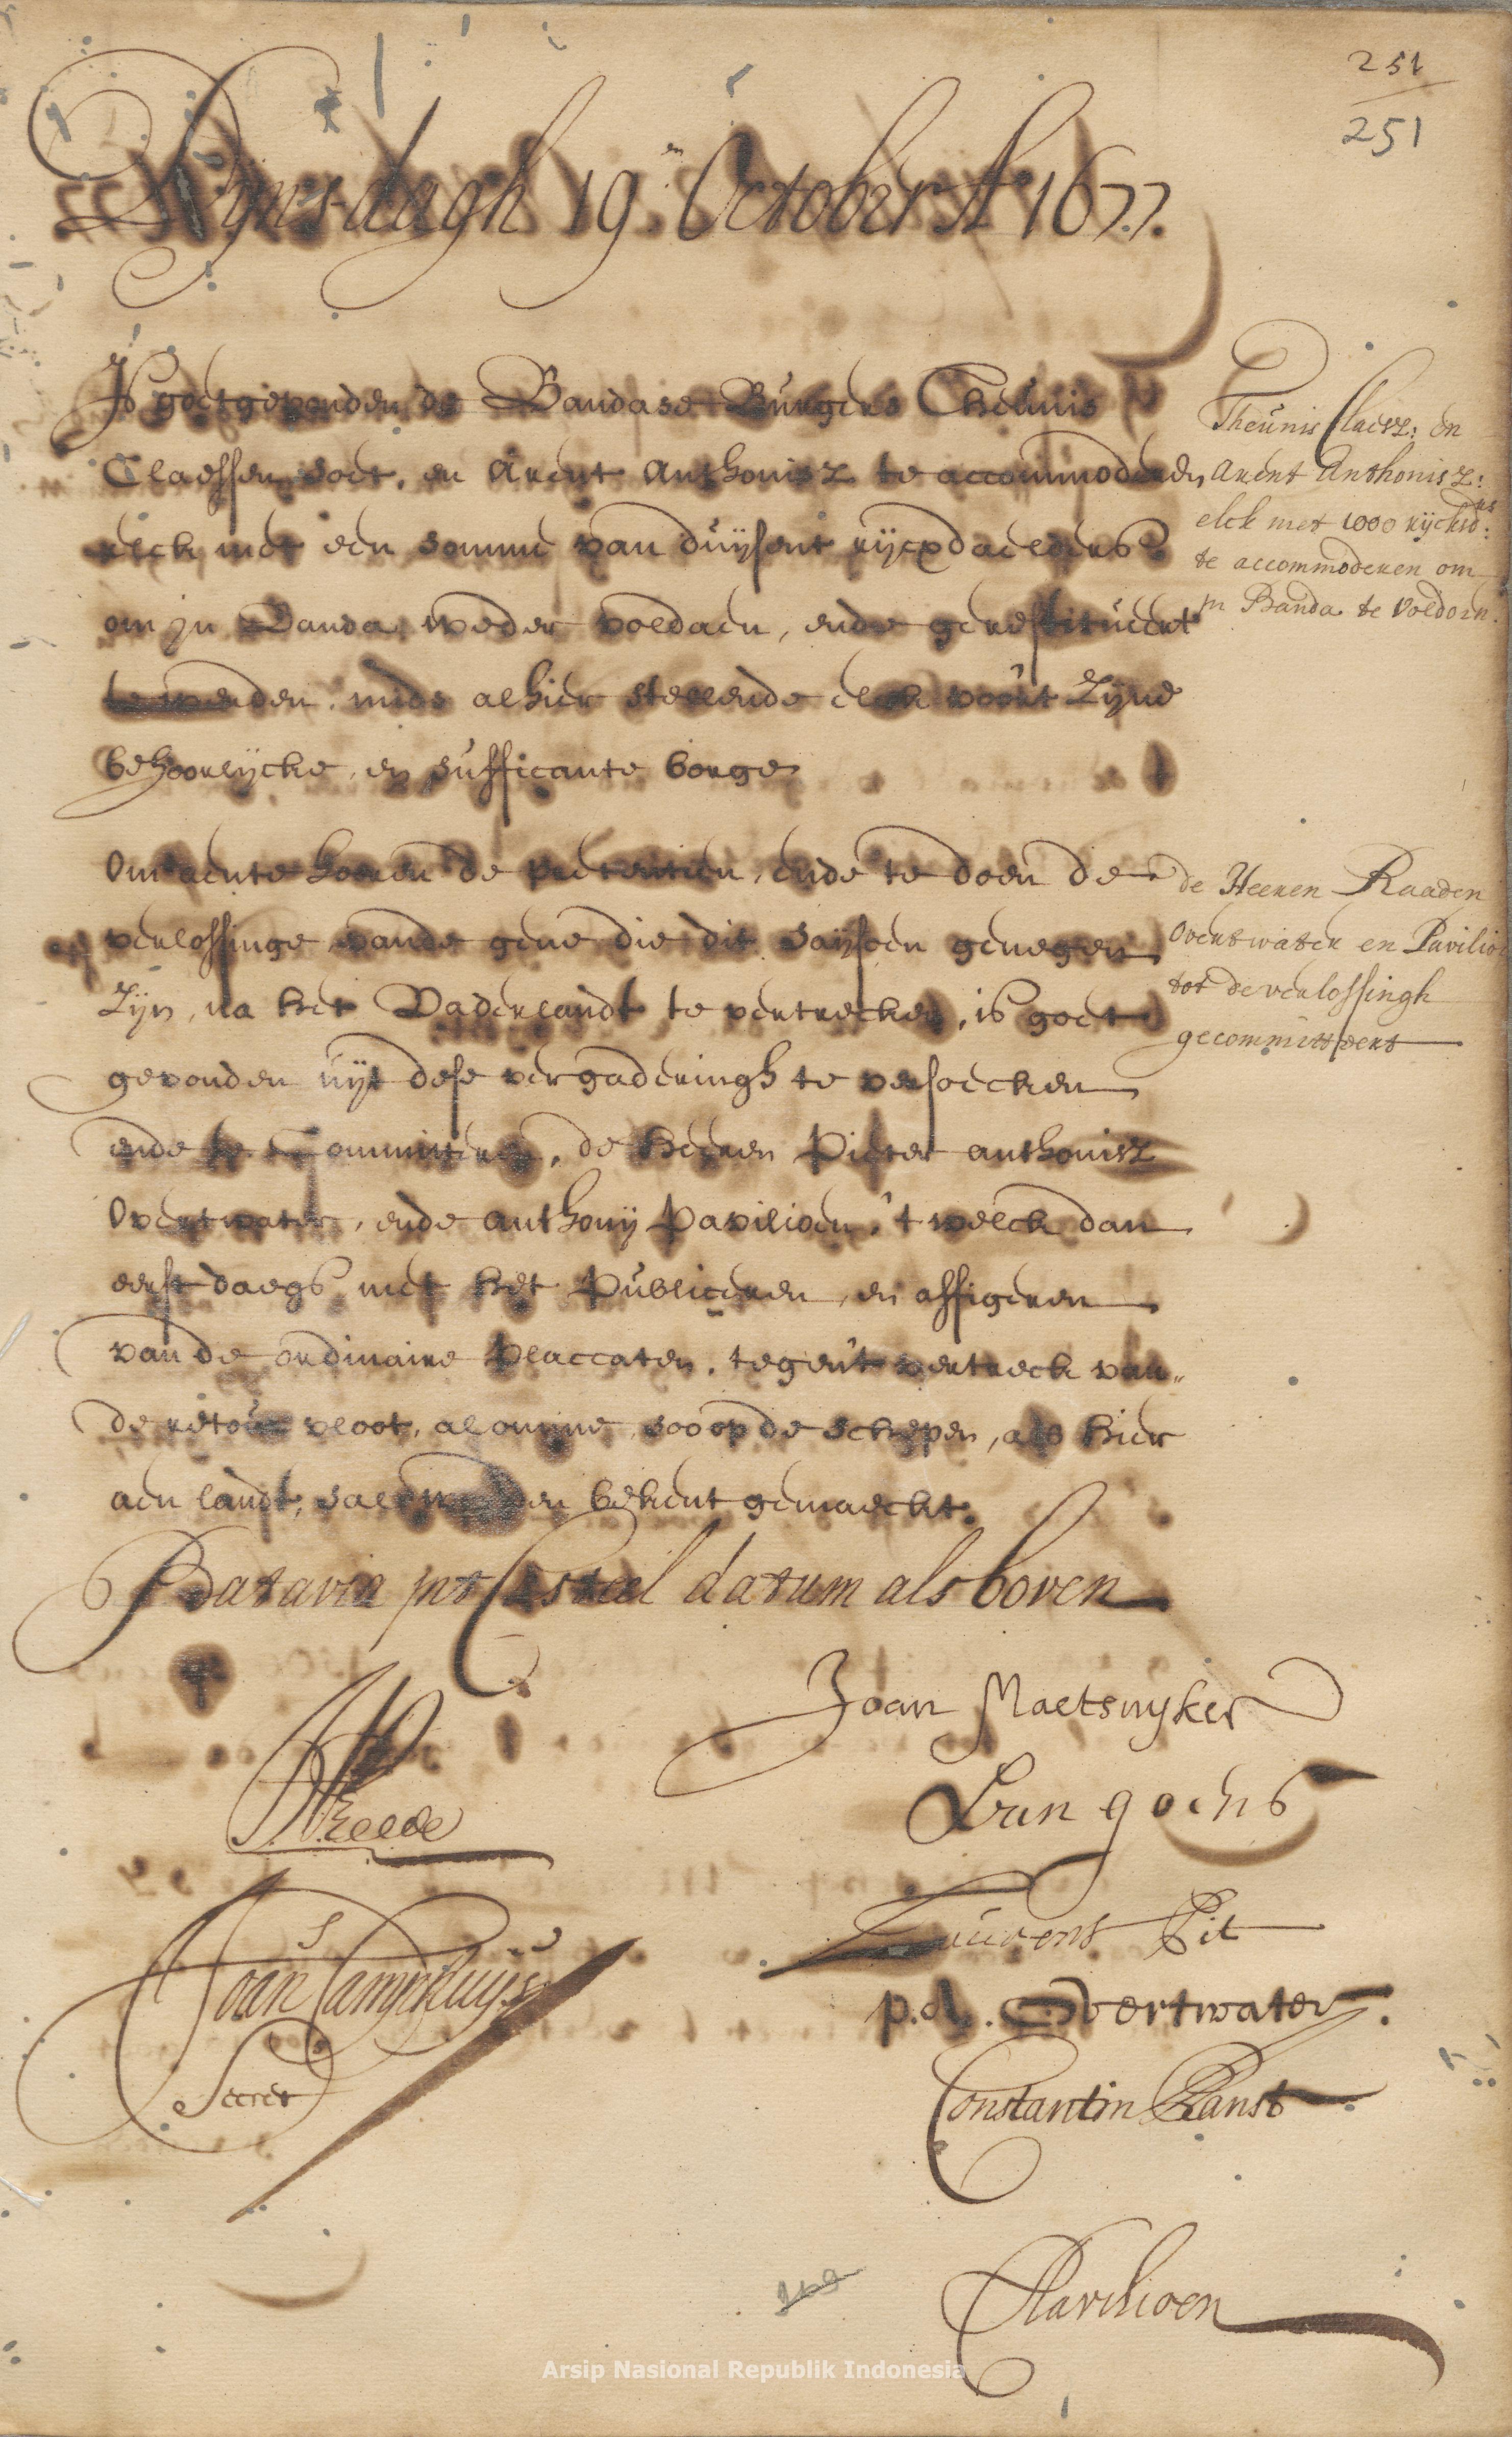 251
251
Dijnsdagh 19.en October Ao 1677.
Is goetgevonden de Bandase Burgers Theunis
Claessen soet, en Arent Anthonisz te accommoderen
elck met een somme van duijsent rijcxdaelders
om in Banda weder voldaen, ende gerestitueert
te werden, mids alhier stellende elck voor't zijne
behoorlijcke, en sufficante borge
Theunis Claesz: en
Arent Anthonisz:
elck met 1000 rijckxd:rs
te accommoderen om
in Banda te voldoen.
Om aente hooren de pretentien, ende te doen de
verlossinge vande gene die dit saijsoen genegen
zijn, na het Vaderlandt te vertrecken, is goet
gevonden uijt dese vergaderingh te versoecken
ende te Committeren, de heeren Pieter anthonisz
Overtwater, ende anthonij Pavilioen, 't welck dan
eerst daegs met het Publiceren, en affigeren
van de ordinaire Placcaten, tegen't vertreck van„
de retour vloot, alomme, soo op de schepen, als hier
aen landt, sal werden bekent gemaeckt.
de Heeren Raaden
Overtwater en Pavilioen
tot de verlossingh
gecommitteert
Batavia int Casteel datum als boven
Joan Maetsuyker
Van goens
Laurens Pit
p.a. Overtwater.
Constantin Ranst
Pavilioen
Joan Camphuijs
Secret
Arsip Nasional Republik Indonesia